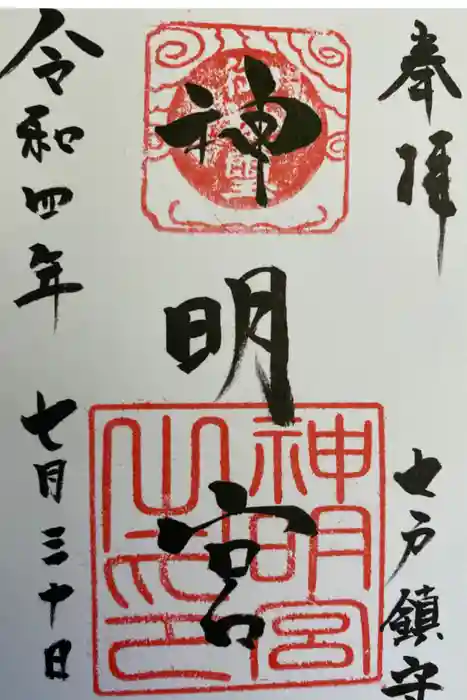 奉拝
七戸鎮守
神明宮
神明宮之印
令和四年
七月三十日